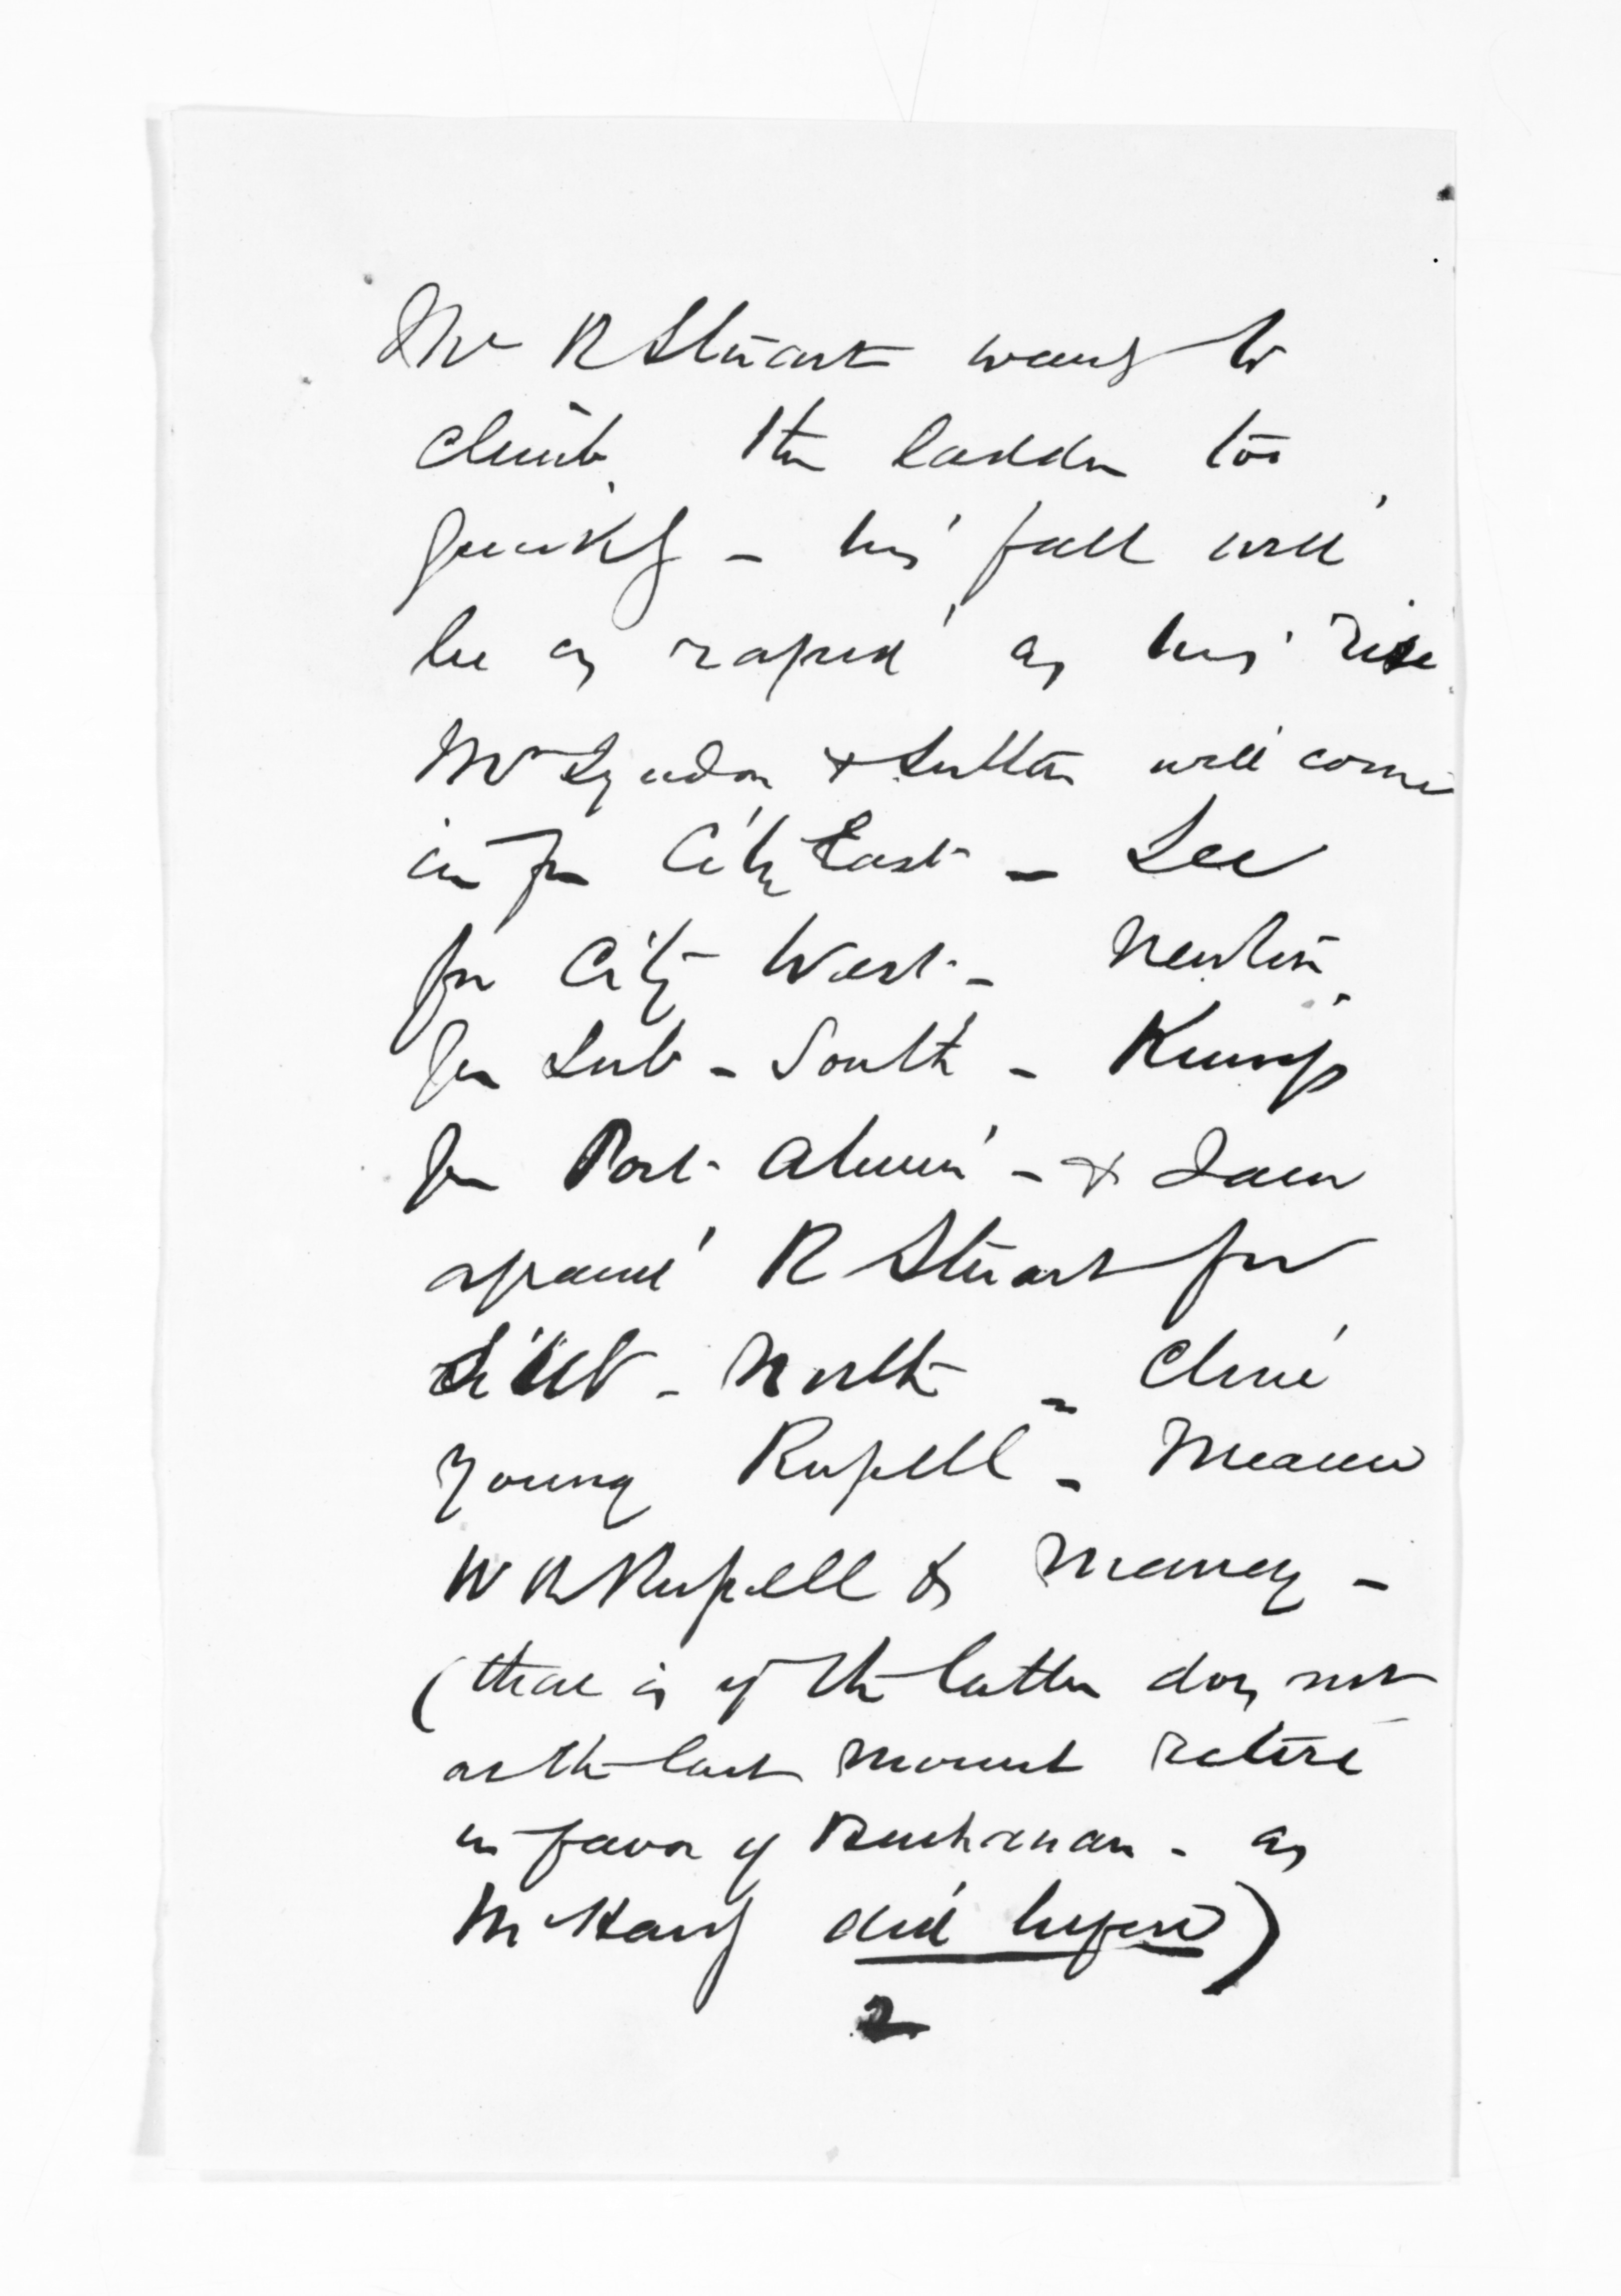 Mr R Stuart wants to
climb the ladder too
quickly - his fall will
be as rapid as his rise
Mr Lyndon & Sutton will come
in for City East - Lee
for City West - Newton
for Sub - South - Kemp
for Port Ahuriri - &
against R Stuart for
Sub - North - Clive
young Russell - Meanee
W R Russell & Maney -
(that is if the latter does not
at the last moment retire
in favor of Buchanan - as
McHardy did before)
2